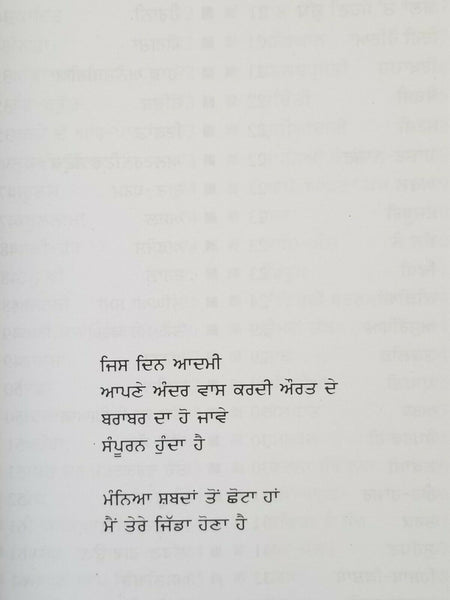 ਜਿਸ ਦਿਨ ਆਦਮੀ
ਆਪਣੇ ਅੰਦਰ ਵਾਸ ਕਰਦੀ ਔਰਤ ਦੇ
ਬਰਾਬਰ ਦਾ ਹੋ ਜਾਵੇ
ਸੰਪੂਰਨ ਹੁੰਦਾ ਹੈ
ਮੰਨਿਆ ਸ਼ਬਦਾਂ ਤੋਂ ਛੋਟਾ ਹਾਂ
ਮੈਂ ਤੇਰੇ ਜਿੱਡਾ ਹੋਣਾ ਹੈ